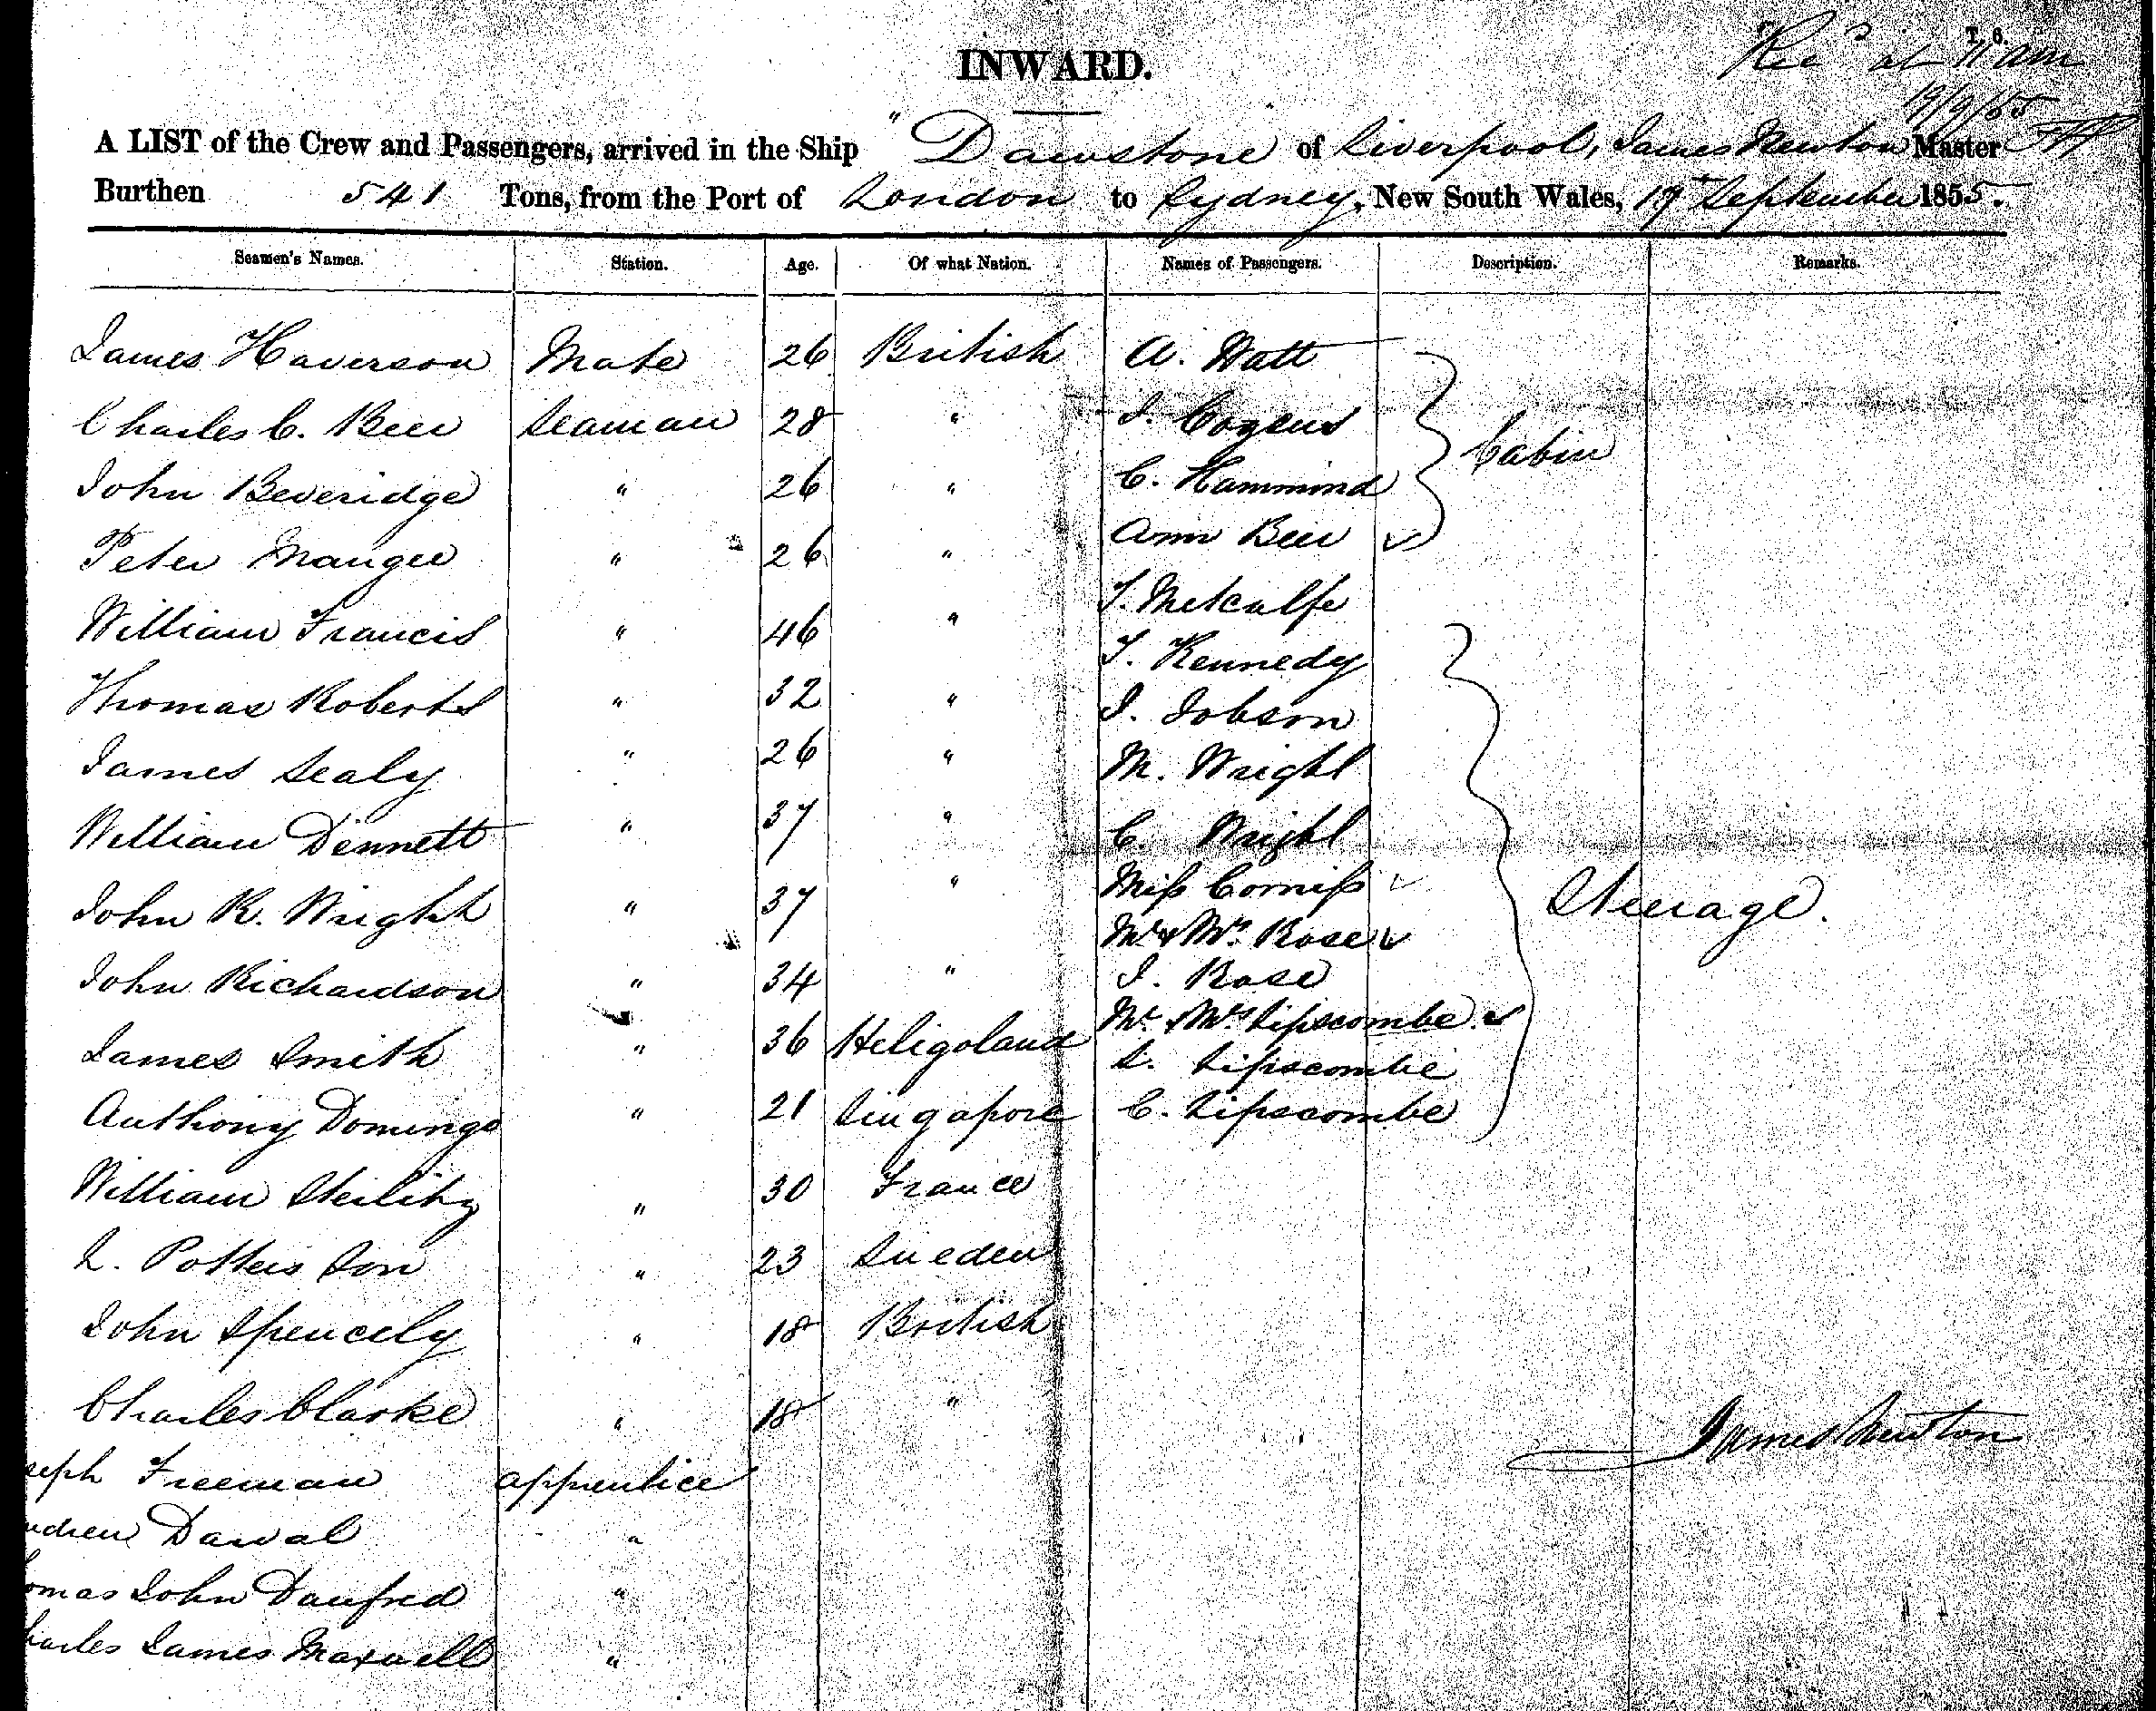 T. 6.
Rec'd at 11 am
19/9/55
INWARD.
A LIST of the Crew and Passengers, arrived in the Ship "Dawstone of Liverpool, James Newton Master
Burthen 541 Tons, from the Port of London to Sydney, New South Wales, 19th September 1855.
Seamen's Names. Station. Age. Of what Nation. Names of Passengers. Description. Remarks.
James Haverson Mate 26 British A. Watt
Charles C. Beer Seaman 28 " J. Cozens
Cabin
John Beveridge " 26 " C. Hammind
Peter " 26 " Ann Beer ✓
T. Metcalfe
William Francis " 46 "
T. Kennedy
Thomas Roberts " 32 " J. Jobson
James Sealy " 26 " M. Wright
William Dennett " 37 " C. Wright
Miss Corniss ✓
John R. Wright " 37 " Steerage.
Mr & Mrs Rose ✓
John Richardson " 34 " J. Rose
Mr & Mrs Lipscombe ✓
James Smith " 36 Heligoland S. Lipscombe
Anthony Domingo " 21 Singapore C. Lipscombe
William " 30 France
L. Potters Son " 23 Sweden
John Spencely " 18 British
Charles Clarke " 18 "
James Newton
seph Freeman apprentice
ndrew "
omas John Danfred "
harles James Maxwell "